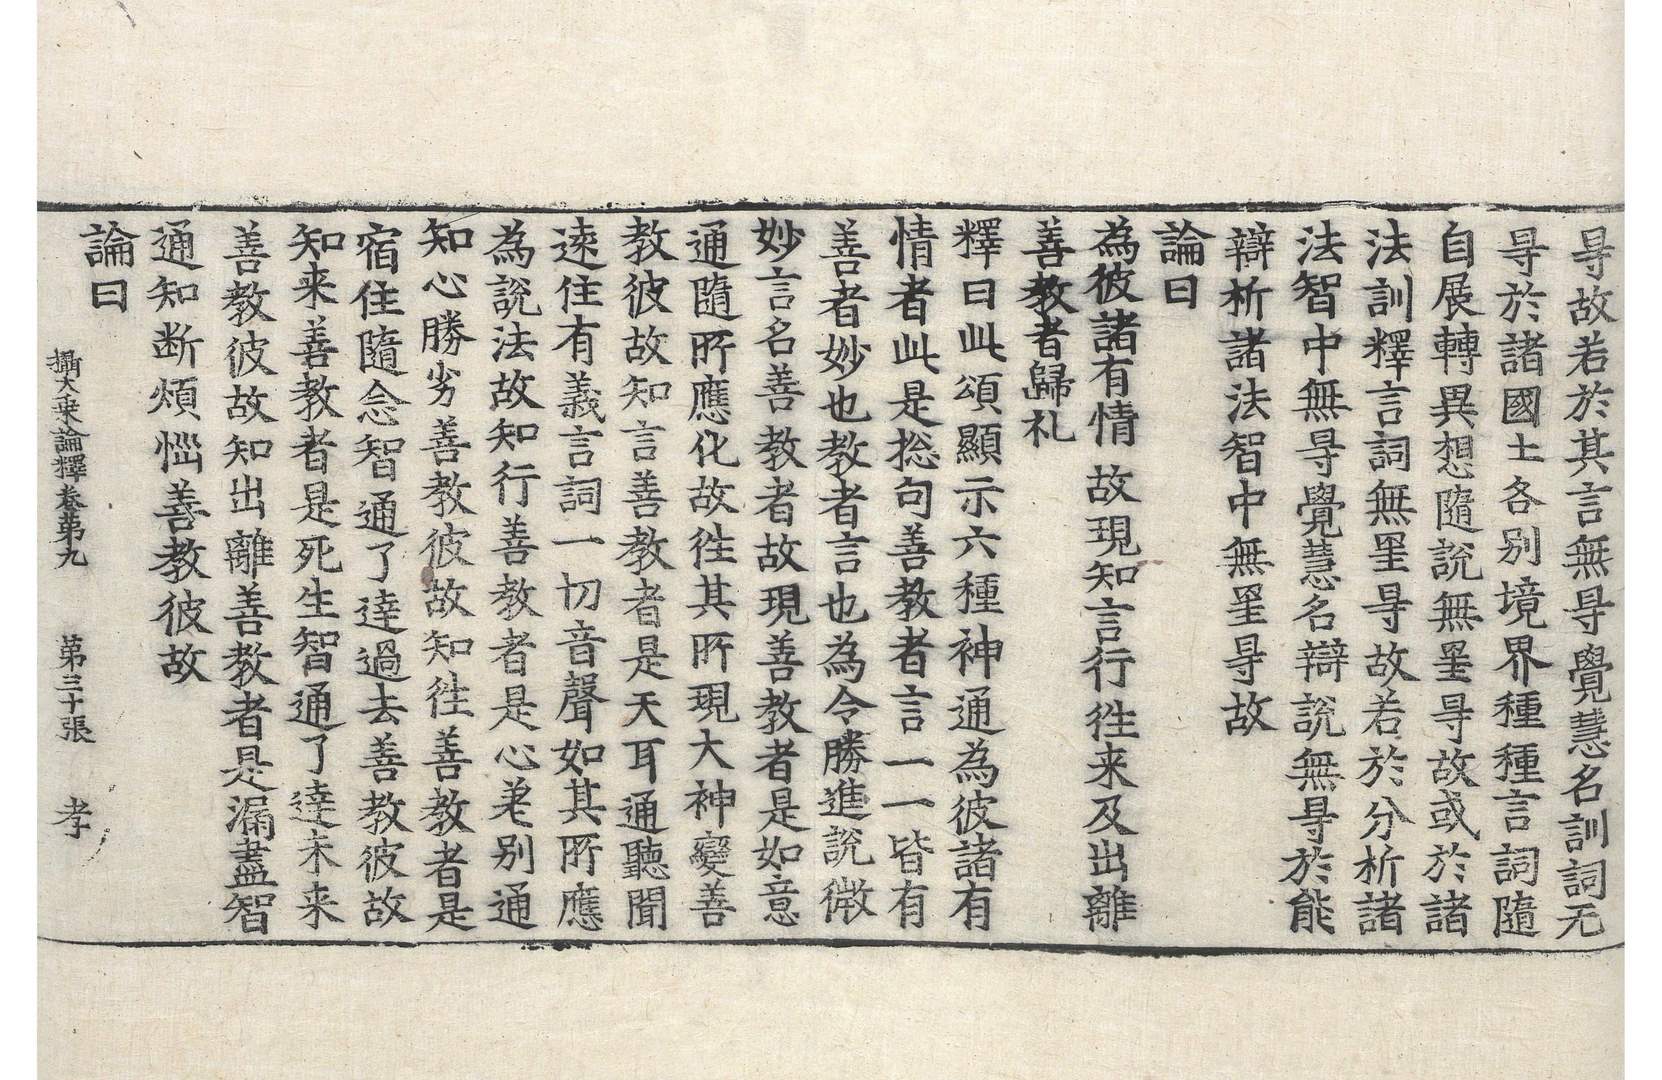 㝵故若於其言無㝵覺慧名訓詞无
㝵於諸國土各別境界種種言詞隨
自展轉異想隨說無罣㝵故或於諸
法訓釋言詞無罣㝵故若於分析諸
法智中無㝵覺慧名辯說無㝵於能
辯析諸法智中無罣㝵故
論曰
為彼諸有情 故現知言行 徃来及出離
善教者歸礼
釋曰此頌顯示六種神通為彼諸有
情者此是捴句善教者言一一皆有
善者妙也教者言也為令勝進說微
妙言名善教者故現善教者是如意
通隨所應化故徃其所現大神變善
教彼故知言善教者是天耳通聽聞
遠住有義言詞一切音聲如其所應
為說法故知行善教者是心差別通
知心勝劣善教彼故知徃善教者是
宿住隨念智通了達過去善教彼故
知来善教者是死生智通了達未来
善教彼故知出離善教者是漏盡智
通知断煩惱善教彼故
論曰
攝大乗論釋卷第九 第三十張 孝